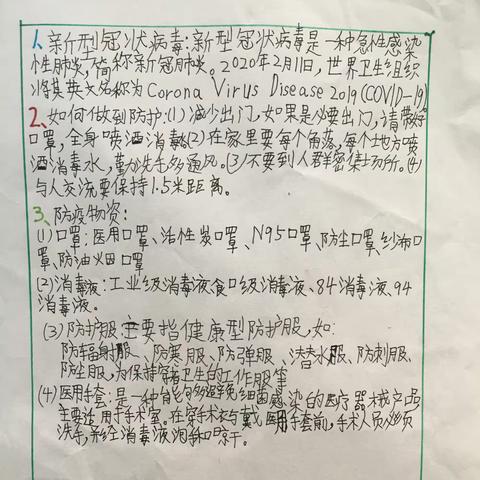 1、新型冠状病毒:新型冠状病毒是一种急性感染
性肺炎,简称新冠肺炎。2020年2月11日,世界卫生组织
将其英文名称为Corona Virus Disease 2019(COVID-19)
2、如何做到防护:(1)减少出门,如果是必要出门,请带好
口罩,全身喷洒消毒。(2)在家里要每个角落,每个地方喷
洒消毒水,勤洗手多通风。(3)不要到人群密集场所。(4)
与人交流要保持1.5米距离。
3、防疫物资:
(1)口罩:医用口罩、活性炭口罩、N95口罩、防尘口罩、纱布口
罩、防油烟口罩
(2)消毒液:工业级消毒液、食品级消毒液、84消毒液、94
消毒液。
(3)防护服主要指健康型防护服,如:
防辐射服、防寒服、防弹服、潜水服、防刺服、
防尘服,为保持穿者卫生的工作服等
(4)医用手套:是一种能够避免细菌感染的医疗器械产品
主要适用于手术室。在穿手术衣与戴医用手套前,手术人员必须
洗手,并经消毒液泡和晾干。